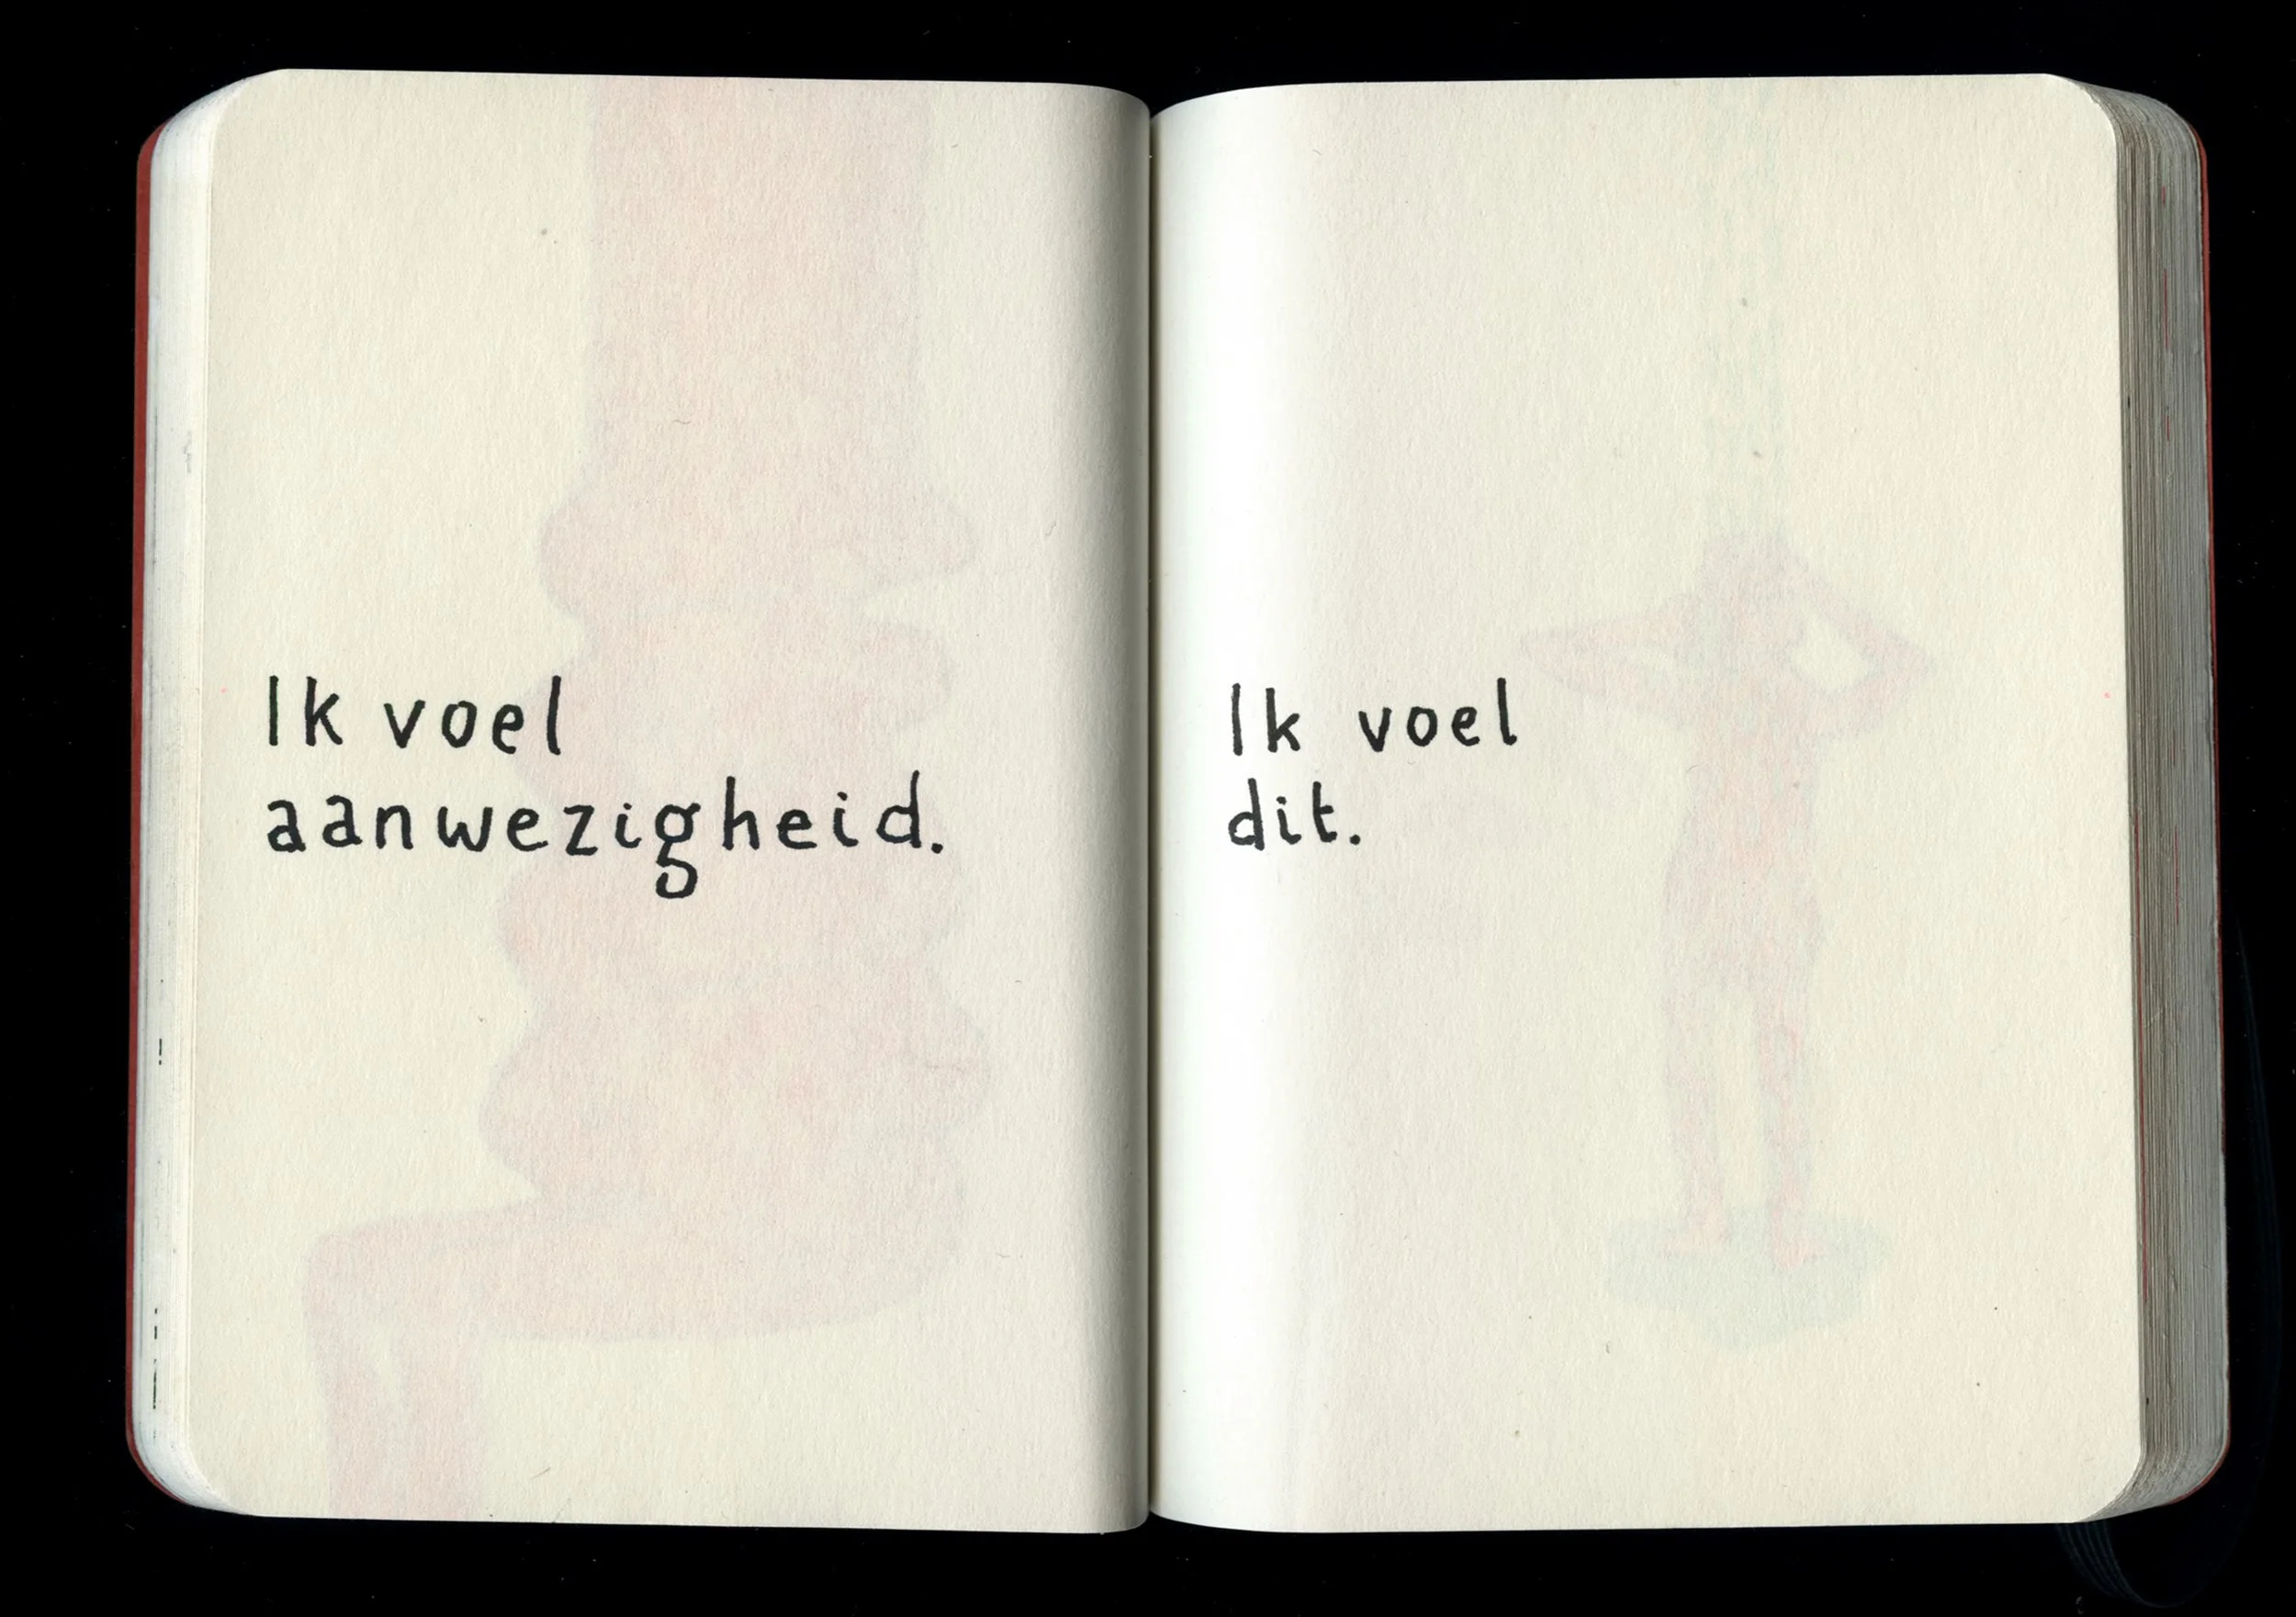 Ik voel
aanwezigheid.
Ik voel
dit.